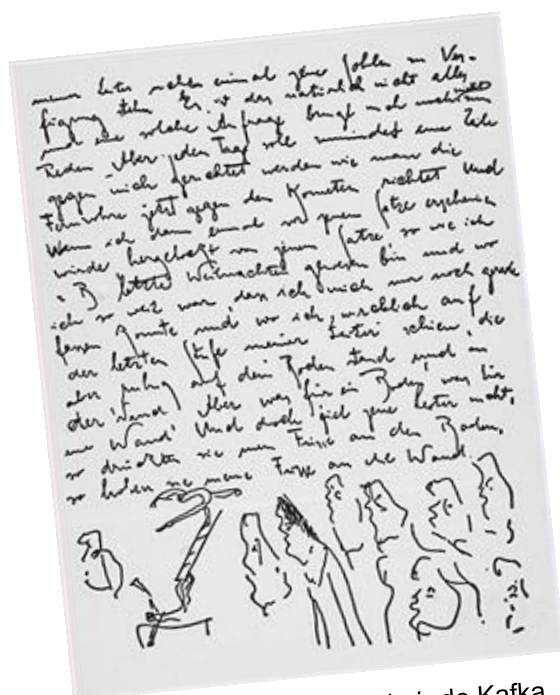 einmal jene Sohlen zur Ver-
fügung stehn. Es ist das natürlich nicht alles
und eine solche Anfrage bringt mich noch nicht zum
Reden. Aber jeden Tag soll mindest eine Zeile
gegen mich gerichtet werden wie man die
Fernrohre jetzt gegen den Kometen richtet. Und
Wenn ich dann einmal vor jenem Satze erscheinen
würde hergelockt von jenem Satze, so wie ich
z B. letzte Weihnachten gewesen bin und wo
ich so weit war, dass ich mich nur noch gerade
fassen konnte und wo ich wirklich auf
der letzten Stufe meiner Leiter schien, die
aber ruhig auf dem Boden stand und an
der Wand. Aber was für ein Boden, was für
eine Wand! Und doch fiel jene Leiter nicht,
so drückten sie meine Füsse an den Boden,
so hoben sie meine Füsse an die Wand.
de Kafka